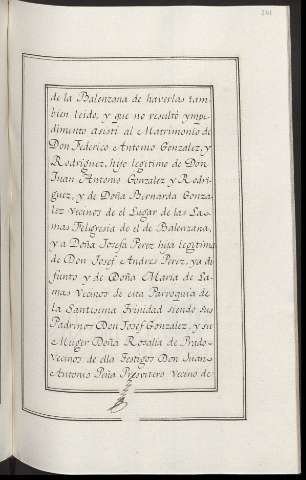 de la Balenzana de haverlas tam-
bien leido, y que no resultó ympe-
dimento asistí al Matrimonio de
Don Federico Antonio Gonzalez, y
Rodriguez, hijo legitimo de Don
Juan Antonio Gonzalez y Rodri-
guez, y de Doña Bernarda Gonza-
lez vecinos de el Lugar de las La-
mas Feligresia de el de Balenzana,
y a Doña Josefa Perez hija legitima
de Don Josef Andres Perez, ya di-
funto y de Doña Maria de La-
mas Vecinos de esta Parroquia de
la Santisima Trinidad siendo sus
Padrinos Don Josef Gonzalez, y su
Muger Doña Rosalia de Prado
vecinos de ella Testigos Don Juan
Antonio Peña Presvitero Vecino de